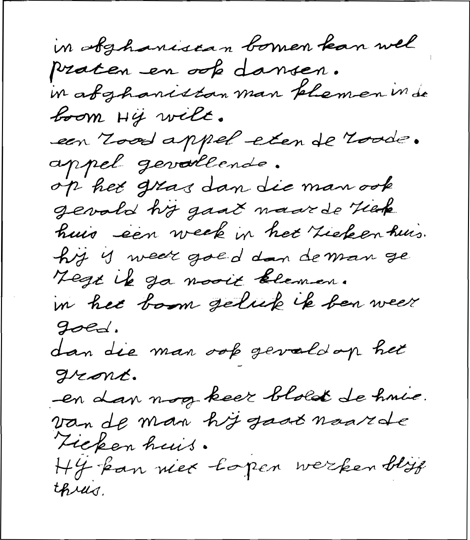 in afghanistan bomen kan wel
praten en ook dansen.
in afghanistan man klemen in de
boom Hij wilt.
een rood appel eten de roode.
appel gevallende.
op het gras dan die man ook
gevald hij gaat naar de ziek
huis een week in het ziekenhuis.
hij is weer goed dan de man ge
zegt ik ga nooit klemen.
in het boom geluk ik ben weer
goed.
dan die man ook gevald op het
gront.
en dan nog keer bloet de knie.
van de man hij gaat naar de
ziekenhuis.
Hij kan niet lopen werken blijf
thuis.